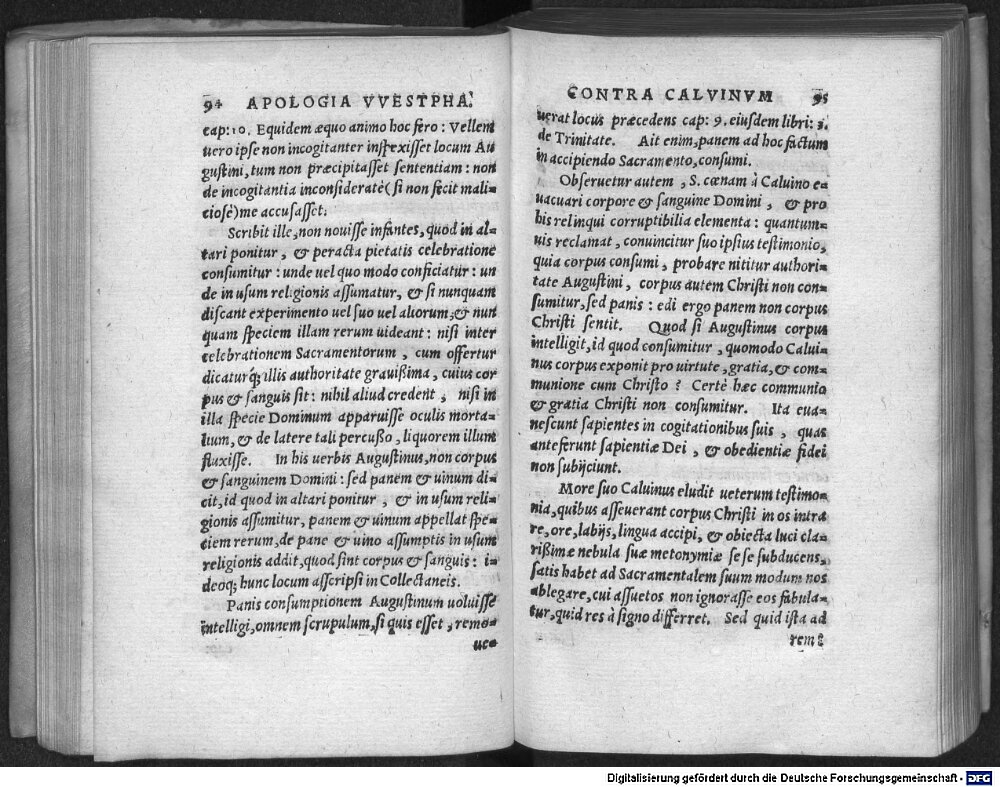 94 APOLOGIA VVESTPHA:
cap: 10. Equidem æquo animo hoc fero: Vellem
uero ipse non incogitanter inspexisset locum Au
gustini, tum non præcipitasset sententiam: non
de incogitantia inconsideratè (si non fecit mali=
ciosè) me accusasset.
Scribit ille, non nouisse infantes, quod in al=
tari ponitur, & peracta pietatis celebratione
consumitur: unde uel quo modo conficiatur: un
de in usum religionis assumatur, & si nunquam
discant experimento uel suo uel aliorum, & nun
quam speciem illam rerum uideant: nisi inter
celebrationem Sacramentorum, cum offertur
dicaturq; illis authoritate grauißima, cuius cor
pus & sanguis sit: nihil aliud credent, nisi in
illa specie Dominum apparuisse oculis morta=
lium, & de latere tali percußo, liquorem illum
fluxisse. In his uerbis Augustinus, non corpus
& sanguinem Domini: sed panem & uinum di=
cit, id quod in altari ponitur, & in usum reli=
gionis assumitur, panem & uinum appellat spe=
ciem rerum, de pane & uino assumptis in usum
religionis addit, quod sint corpus & sanguis: i=
deoq; hunc locum asscripsi in Collectaneis.
Panis consumptionem Augustinum uoluisse
intelligi, omnem scrupulum, si quis esset, remo=
uea
CONTRA CALVINVM 95
uerat locus præcedens cap: 9. eiusdem libri: 3.
de Trinitate. Ait enim, panem ad hoc factum
in accipiendo Sacramento, consumi.
Obseruetur autem, S. cœnam à Caluino e=
uacuari corpore & sanguine Domini, & pro
his relinqui corruptibilia elementa: quantum=
uis reclamat, conuincitur suo ipsius testimonio,
quia corpus consumi, probare nititur authori=
tate Augustini, corpus autem Christi non con=
sumitur, sed panis: edi ergo panem non corpus
Christi sentit. Quod si Augustinus corpus
intelligit, id quod consumitur, quomodo Calui=
nus corpus exponit pro uirtute, gratia, & com=
munione cum Christo? Certè hæc communio
& gratia Christi non consumitur. Ita eua=
nescunt sapientes in cogitationibus suis, quas
anteferunt sapientiæ Dei, & obedientiæ fidei
non subijciunt.
More suo Caluinus eludit ueterum testimo=
nia, quibus asseuerant corpus Christi in os intra
re, ore, labijs, lingua accipi, & obiecta luci cla=
rißimæ nebula suæ metonymiæ se se subducens,
satis habet ad Sacramentalem suum modum nos
ablegare, cui assuetos non ignorasse eos fabula=
tur, quid res à signo differret. Sed quid ista ad
rem?
Digitalisierung gefördert durch die Deutsche Forschungsgemeinschaft - DFG